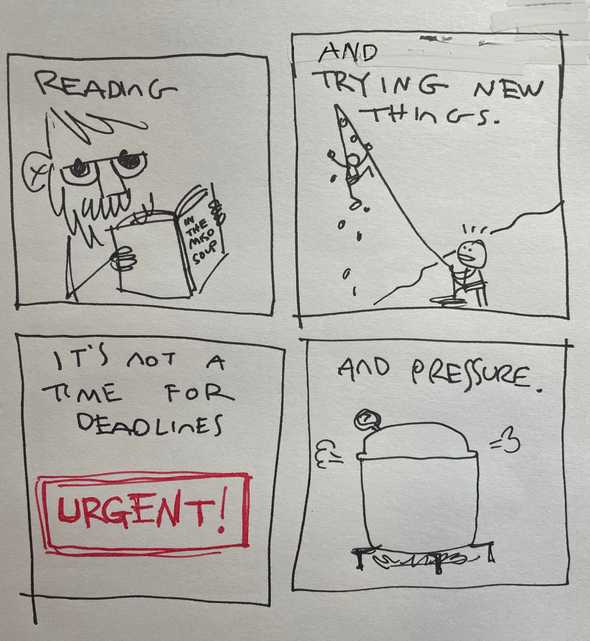 READING
IN
THE
MISO
SOUP
AND
TRYING NEW
THINGS.
IT'S NOT A
TIME FOR
DEADLINES
URGENT!
AND PRESSURE.